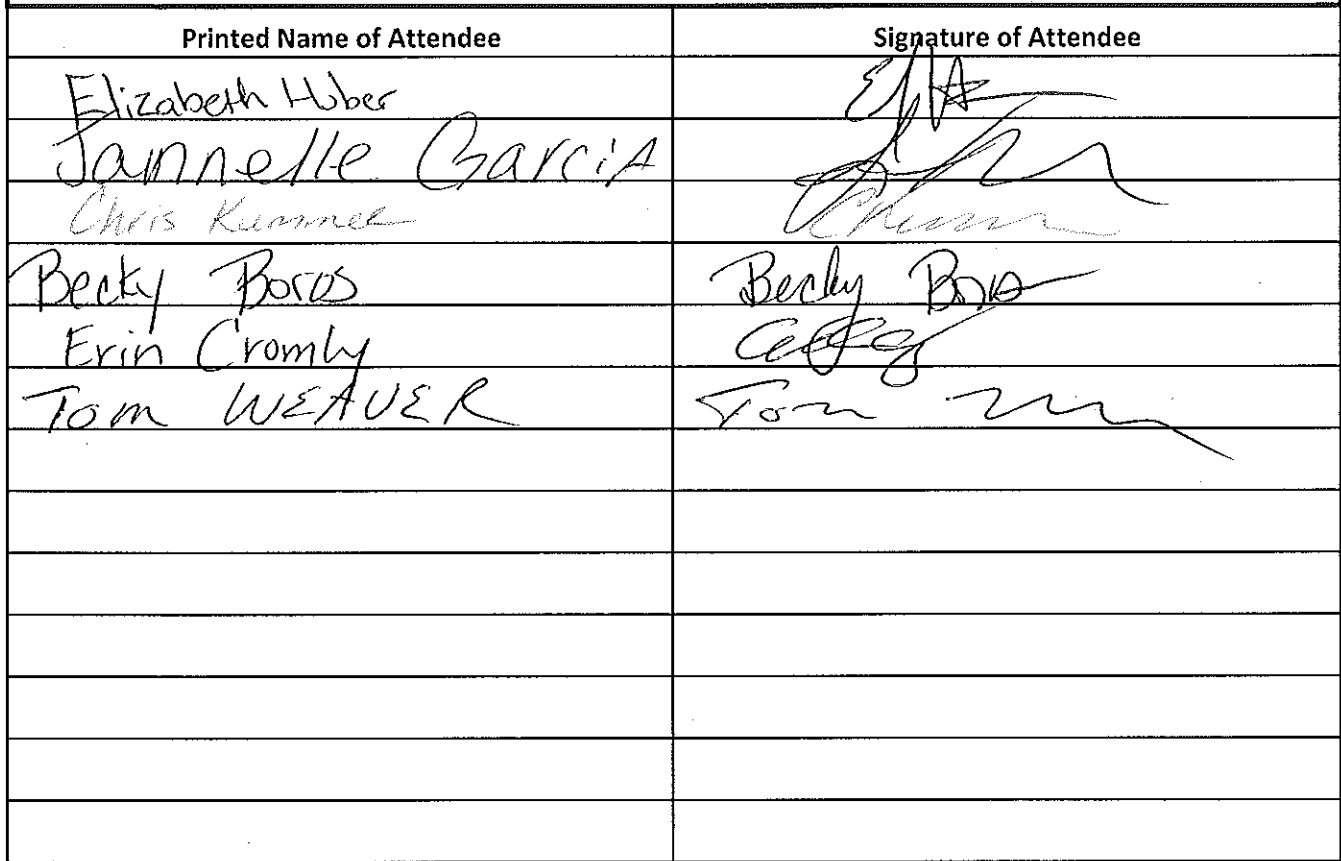 Printed Name of Attendee Signature of Attendee
Elizabeth Huber
Jannelle Garcia
Chris Kummer
Becky Boros Becky
Erin Cromly
Tom WEAVER Tom